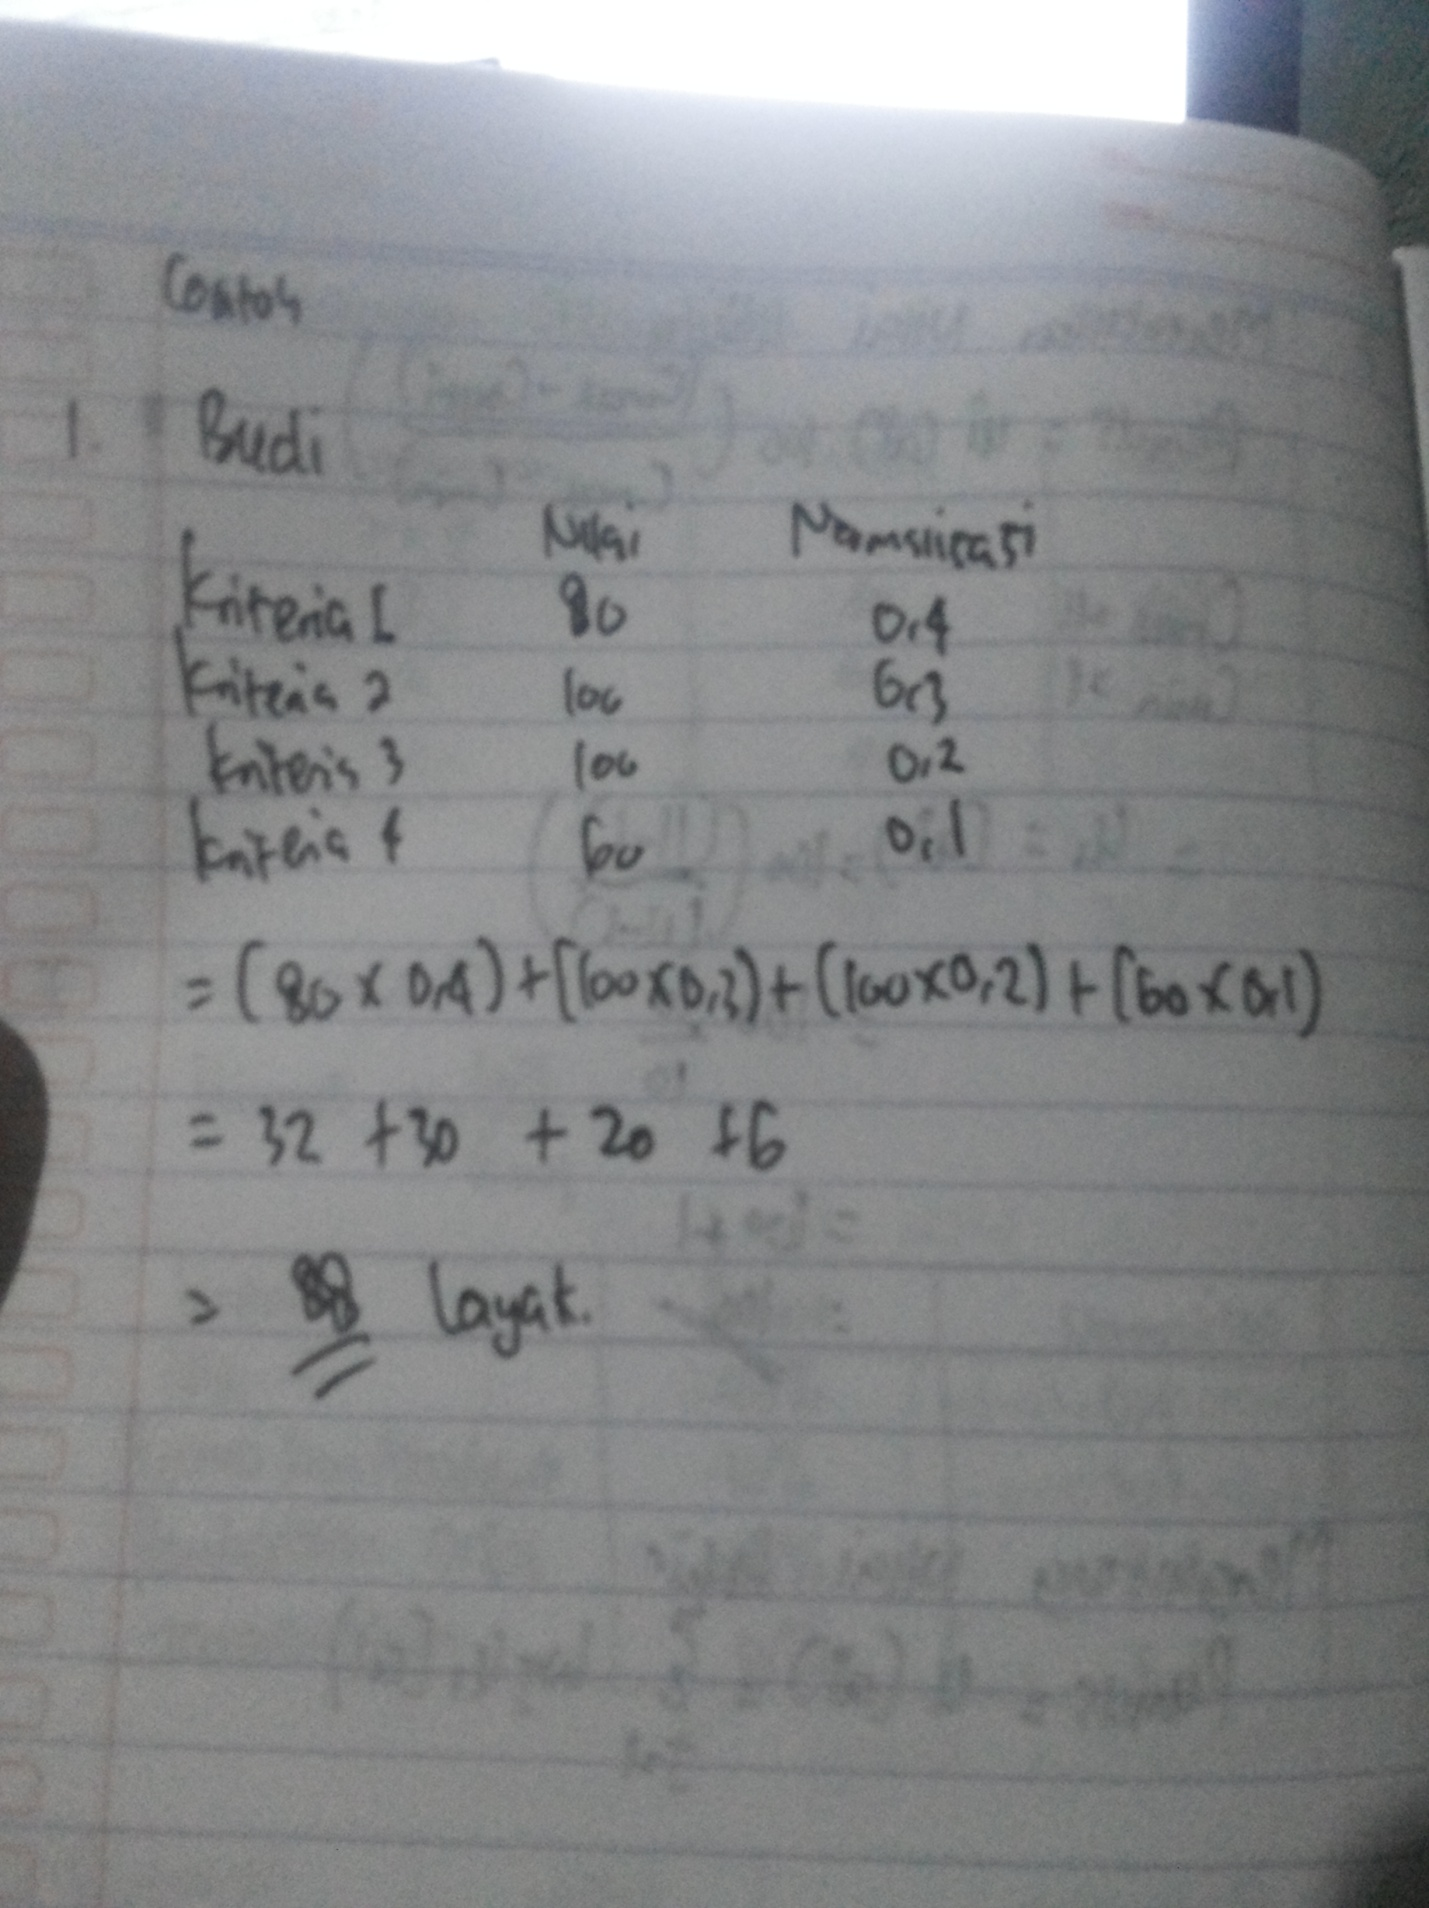 Contoh
1. Budi
Nilai Normalisasi
Kriteria 1 80 0,4
Kriteria 2 100 0,3
Kriteria 3 100 0,2
Kriteria 4 60 0,1
= (80 x 0,4) + (100 x 0,3) + (100 x 0,2) + (60 x 0,1)
= 32 + 30 + 20 + 6
= 88 Layak.